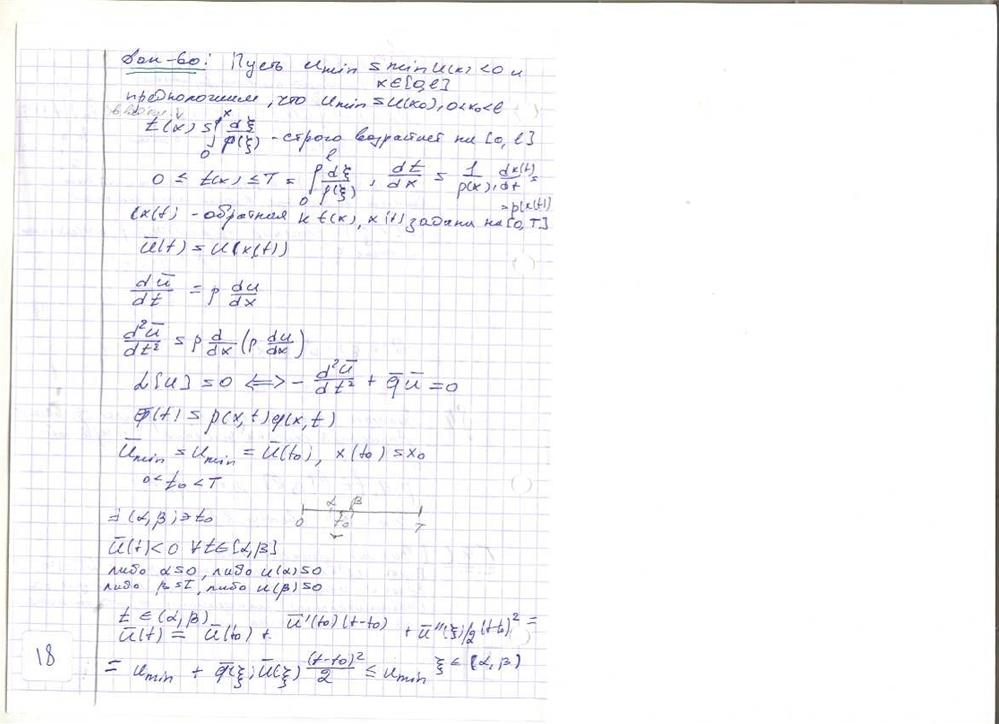 Док-во: Пусть u_min = min u(x) < 0 и
x∈[0,ℓ]
предположим, что u_min = u(x₀), 0<x₀<ℓ
t(x) = ∫₀ˣ dξ/p(ξ) - строго возрастает на [0, ℓ]
0 ≤ t(x) ≤ T = ∫₀^ℓ dξ/p(ξ), dt/dx = 1/p(x), dx(t)/dt =
= p(x(t))
(x(t) - обратная к t(x), x(t) задана на [0,T]
ū(t) = u(x(t))
dū/dt = p du/dx
d²ū/dt² = p d/dx (p du/dx)
L[u] = 0 ⟺ - d²ū/dt² + q̄ū = 0
q̄(t) = p(x,t)q(x,t)
ū_min = u_min = ū(t₀), x(t₀) = x₀
0 < t₀ < T
α β
0 t₀ T
∃ (α, β) ∋ t₀
ū(t) < 0 ∀t∈[α,β]
либо α=0, либо u(α)=0
либо β=T, либо u(β)=0
t ∈ (α, β)
ū(t) = ū(t₀) + ū'(t₀)(t-t₀) + ū''(ξ)/2 (t-t₀)² =
= u_min + q̄(ξ)ū(ξ) (t-t₀)²/2 ≤ u_min ξ ∈ (α, β)
18